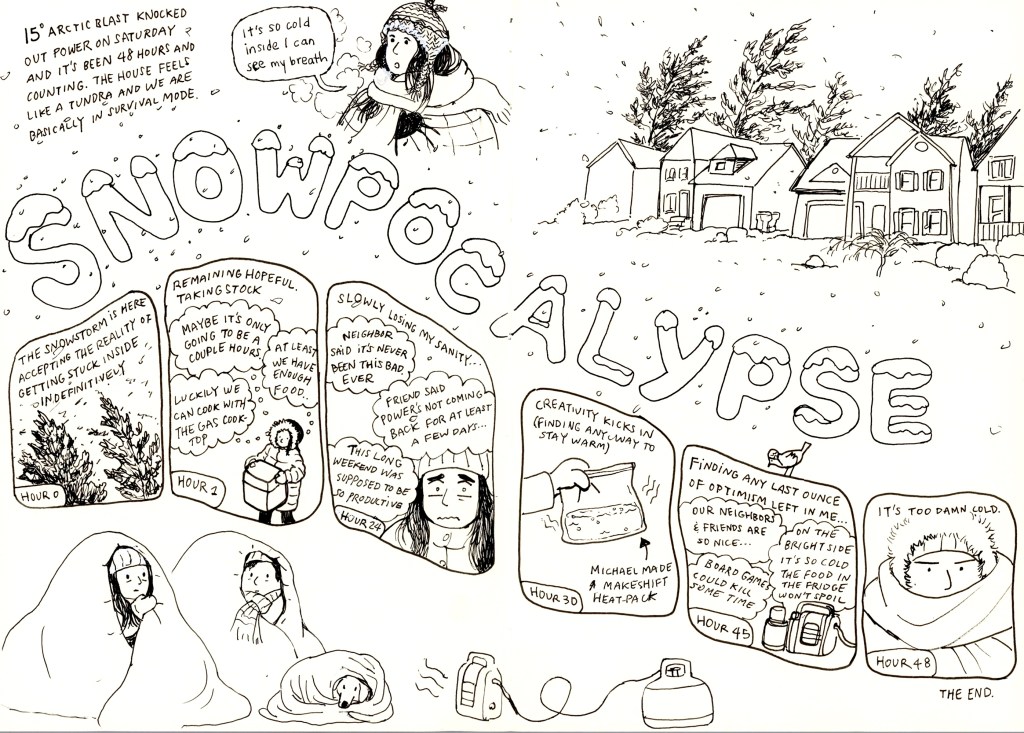 15° ARCTIC BLAST KNOCKED
OUT POWER ON SATURDAY
AND IT'S BEEN 48 HOURS AND
COUNTING. THE HOUSE FEELS
LIKE A TUNDRA AND WE ARE
BASICALLY IN SURVIVAL MODE.
It's so cold
inside I can
see my breath
SNOWPOCALYPSE
THE SNOWSTORM IS HERE
ACCEPTING THE REALITY OF
GETTING STUCK INSIDE
INDEFINITIVELY
HOUR 0
REMAINING HOPEFUL.
TAKING STOCK
MAYBE IT'S ONLY
GOING TO BE A
COUPLE HOURS
AT LEAST
WE HAVE
ENOUGH
FOOD..
LUCKILY WE
CAN COOK WITH
THE GAS COOK-
TOP
HOUR 1
SLOWLY LOSING MY SANITY...
NEIGHBOR
SAID IT'S NEVER
BEEN THIS BAD.
EVER
FRIEND SAID
POWER'S NOT COMING
BACK FOR AT LEAST
A FEW DAYS...
THIS LONG
WEEKEND WAS
SUPPOSED TO BE
SO PRODUCTIVE
HOUR 24
CREATIVITY KICKS IN
(FINDING ANY WAY TO
STAY WARM)
MICHAEL MADE
A MAKESHIFT
HEAT-PACK
HOUR 30
FINDING ANY LAST OUNCE
OF OPTIMISM LEFT IN ME...
OUR NEIGHBORS
& FRIENDS ARE
SO NICE...
ON THE
BRIGHT SIDE
IT'S SO COLD
THE FOOD IN
THE FRIDGE
WON'T SPOIL
BOARD GAMES
COULD KILL
SOME TIME
HOUR 45
IT'S TOO DAMN COLD.
HOUR 48
THE END.